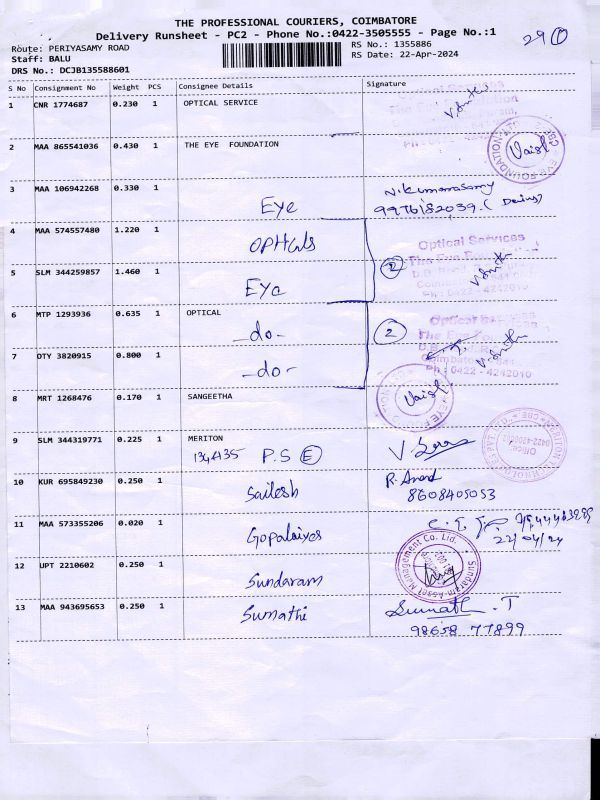 THE PROFESSIONAL COURIERS, COIMBATORE
Delivery Runsheet - PC2 - Phone No.:0422-3505555 - Page No.:1
29 1
Route: PERIYASAMY ROAD
RS No.: 1355886
Staff: BALU
RS Date: 22-Apr-2024
DRS No.: DCJB135588601
S No Consignment No Weight PCS Consignee Details Signature
1 CNR 1774687 0.230 1 OPTICAL SERVICE V.Smitha
2 MAA 865541036 0.430 1 THE EYE FOUNDATION Vaisl
3 MAA 106942268 0.330 1 Eye N.Kumarasamy
9976182039.
4 MAA 574557480 1.220 1 OPHCals Optical Services
The Eye Foundation
5 SLM 344259857 1.460 1 Eye 2 V.Smitha
Ph : 0422 - 4242010
6 MTP 1293936 0.635 1 OPTICAL Optical Services
-do- 2 The Eye Foundation
7 OTY 3820915 0.800 1 -do- V.Smitha
Ph : 0422 - 4242010
8 MRT 1268476 0.170 1 SANGEETHA Vaisl
9 SLM 344319771 0.225 1 MERITON
P.S E V.
10 KUR 695849230 0.250 1 Sailesh R. Anand
8608405053
11 MAA 573355206 0.020 1 Gopalaiyes
22/04/24
12 UPT 2210602 0.250 1 Sundaram Sundaram Asset Management Co. Ltd.
13 MAA 943695653 0.250 1 Sumathi Sumathi.T
98658 77899